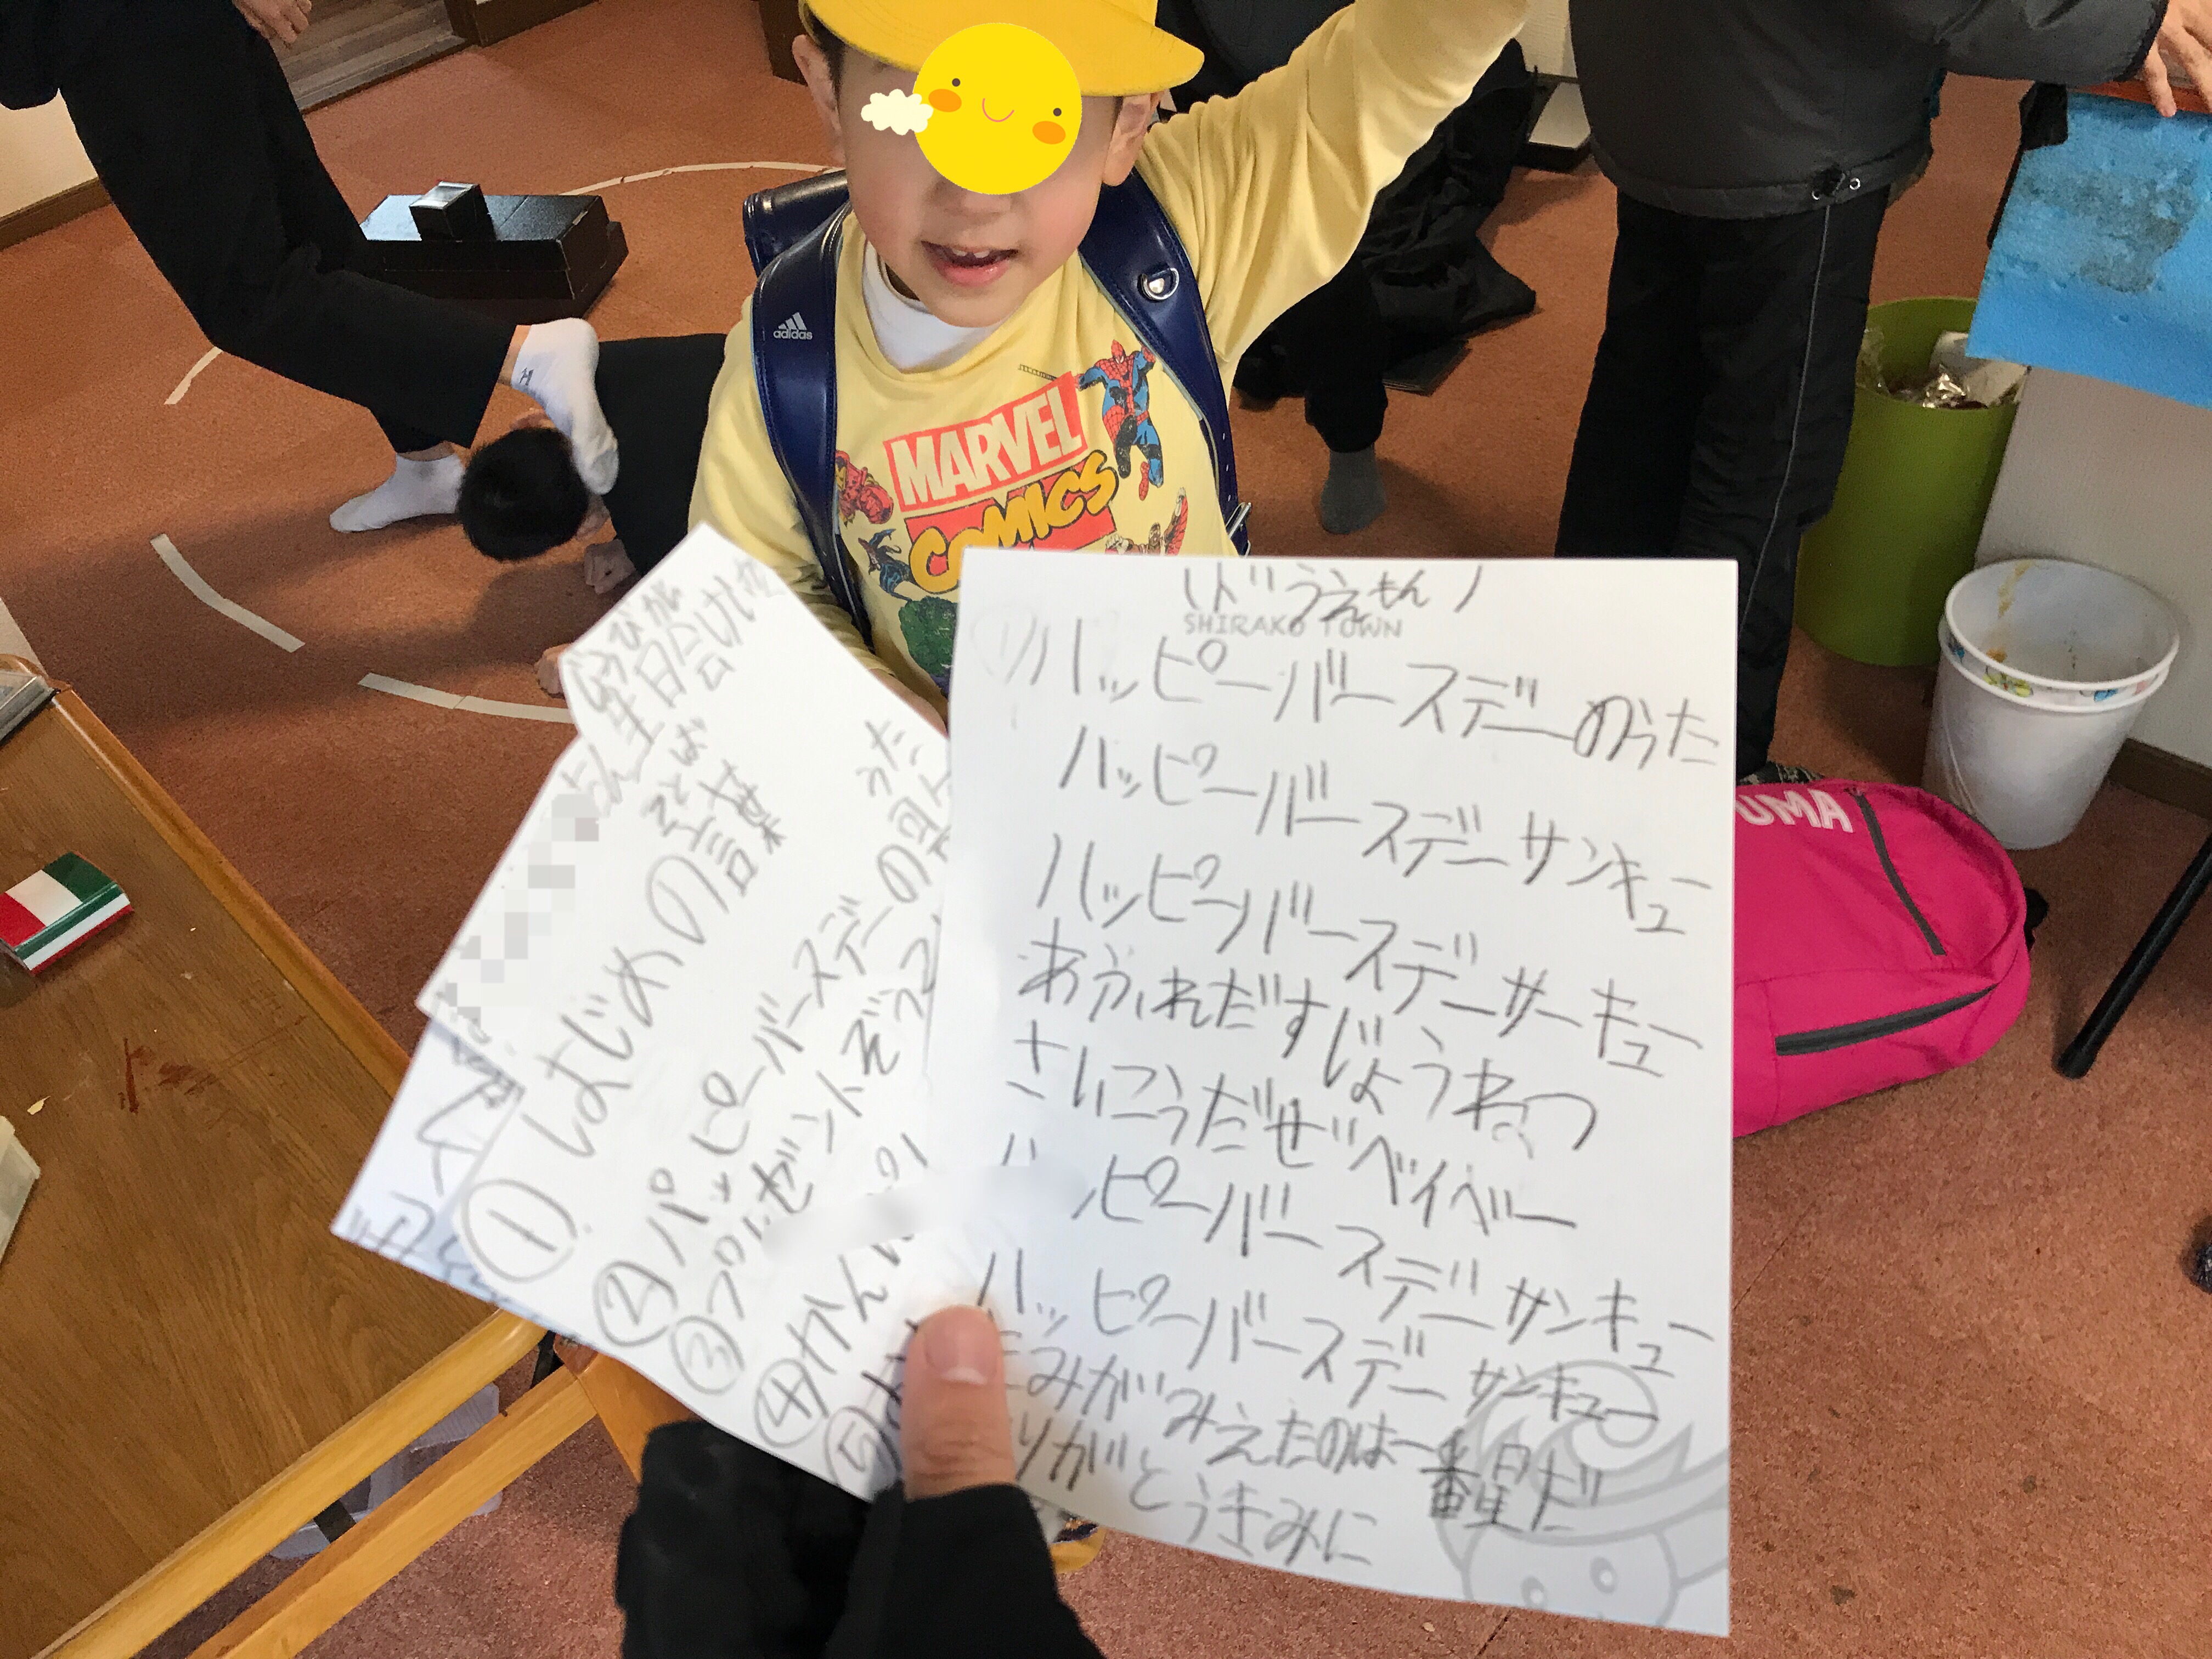 adidas
MARVEL
COMICS
UMA
(どうえもん)
SHIRAKO TOWN
① ハッピーバースデーのうた
ハッピーバースデーサンキュー
ハッピーバースデーサーキュー
あふれだすじょうねつ
さいこうだぜベイベー
ッピーバースデーサンキュー
ハッピーバースデーサンキュー
みがみえたのは一番星だ
りがとうきみに
生日会
ことば
① はじめの言葉
うた
② パッピーバースデーの
③ プレゼントぞう
④ かん
⑤